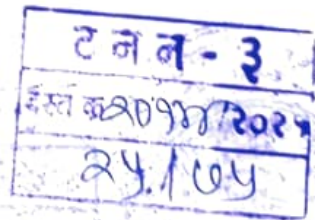 ट न न - ३
दस्त क्र २०१४४/२०२५
२५/७५